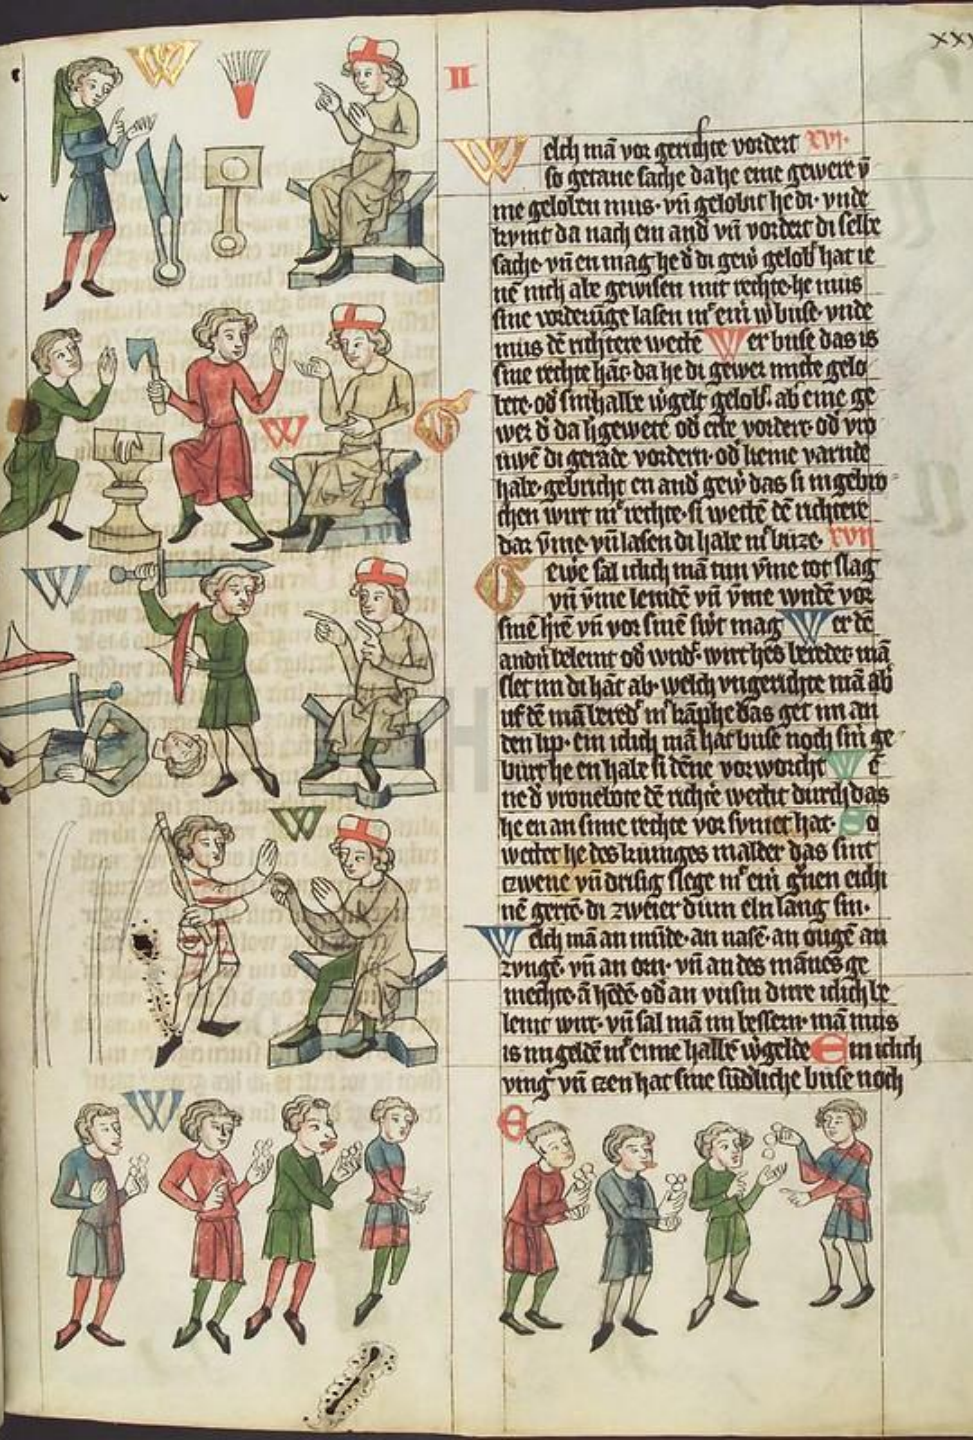 xxv
II
Welch mā vor gerichte vordert xvi.
so getane sache da he eine gewere v̄
me geloben mus· vn̄ gelobit he di· vnde
kvmt da nach ein and vn̄ vordert di selbe
sache· vn̄ en mag he d̄ di gew̄ gelob hat ie
nē nich abe gewisen mit rechte· he mus
sine vorderūge lasen mͬ eim w buse· vnde
mus dē richtere wectē Wer buse das is
sine rechte hāt· da he di gewer mitte gelo
bete· od sin halbe w̄gelt gelob· ab eine ge
wer d̄
od vro
uwē di gerade vordern· od keine varnde
habe· gebricht en and gew̄ das si in gebro
chen wirt mͬ rechte· si wectē dē richtere
dar v̄me· vn̄ lasen di habe mͬ buze· xvii
Gewe sal iclich mā tun v̄me tot slag
vn̄ v̄me lemdē vn̄ v̄me wndē vor
sinē h̄rē vn̄ vor sinē sw̄t mag Wer dē
andn̄ belemt od wnd· wirt hes beredet mā
slet im di hāt ab· welch vngerichte mā ab
uf dē mā bered mͬ kāphe das get im an
den lip· ein iclich mā hat buse noch sin ge
burt he en habe si dēne vorworcht Wē
ne d̄ vronebote dē richtē wectit durch das
he en an sime rechte vor sumet hat· So
wettet he des kuniges malder das sint
czwene vn̄ drisig slege mͬ eim gͬnen eichi
nē gertē· di zweier dum eln lang sin·
Welch mā an mūde· an nasē· an ougē an
zvngē· vn̄ an orn· vn̄ an des mānes ge
mechte· ā hēdē· od an vusin dirre iclich be
lemt wirt· vn̄ sal mā im bessern· mā mus
is im geldē mͬ eime halbē w̄gelde Ein iclich
ving vn̄ czen hat sine sūdliche buse noch
W
W
G
W
W
W
E